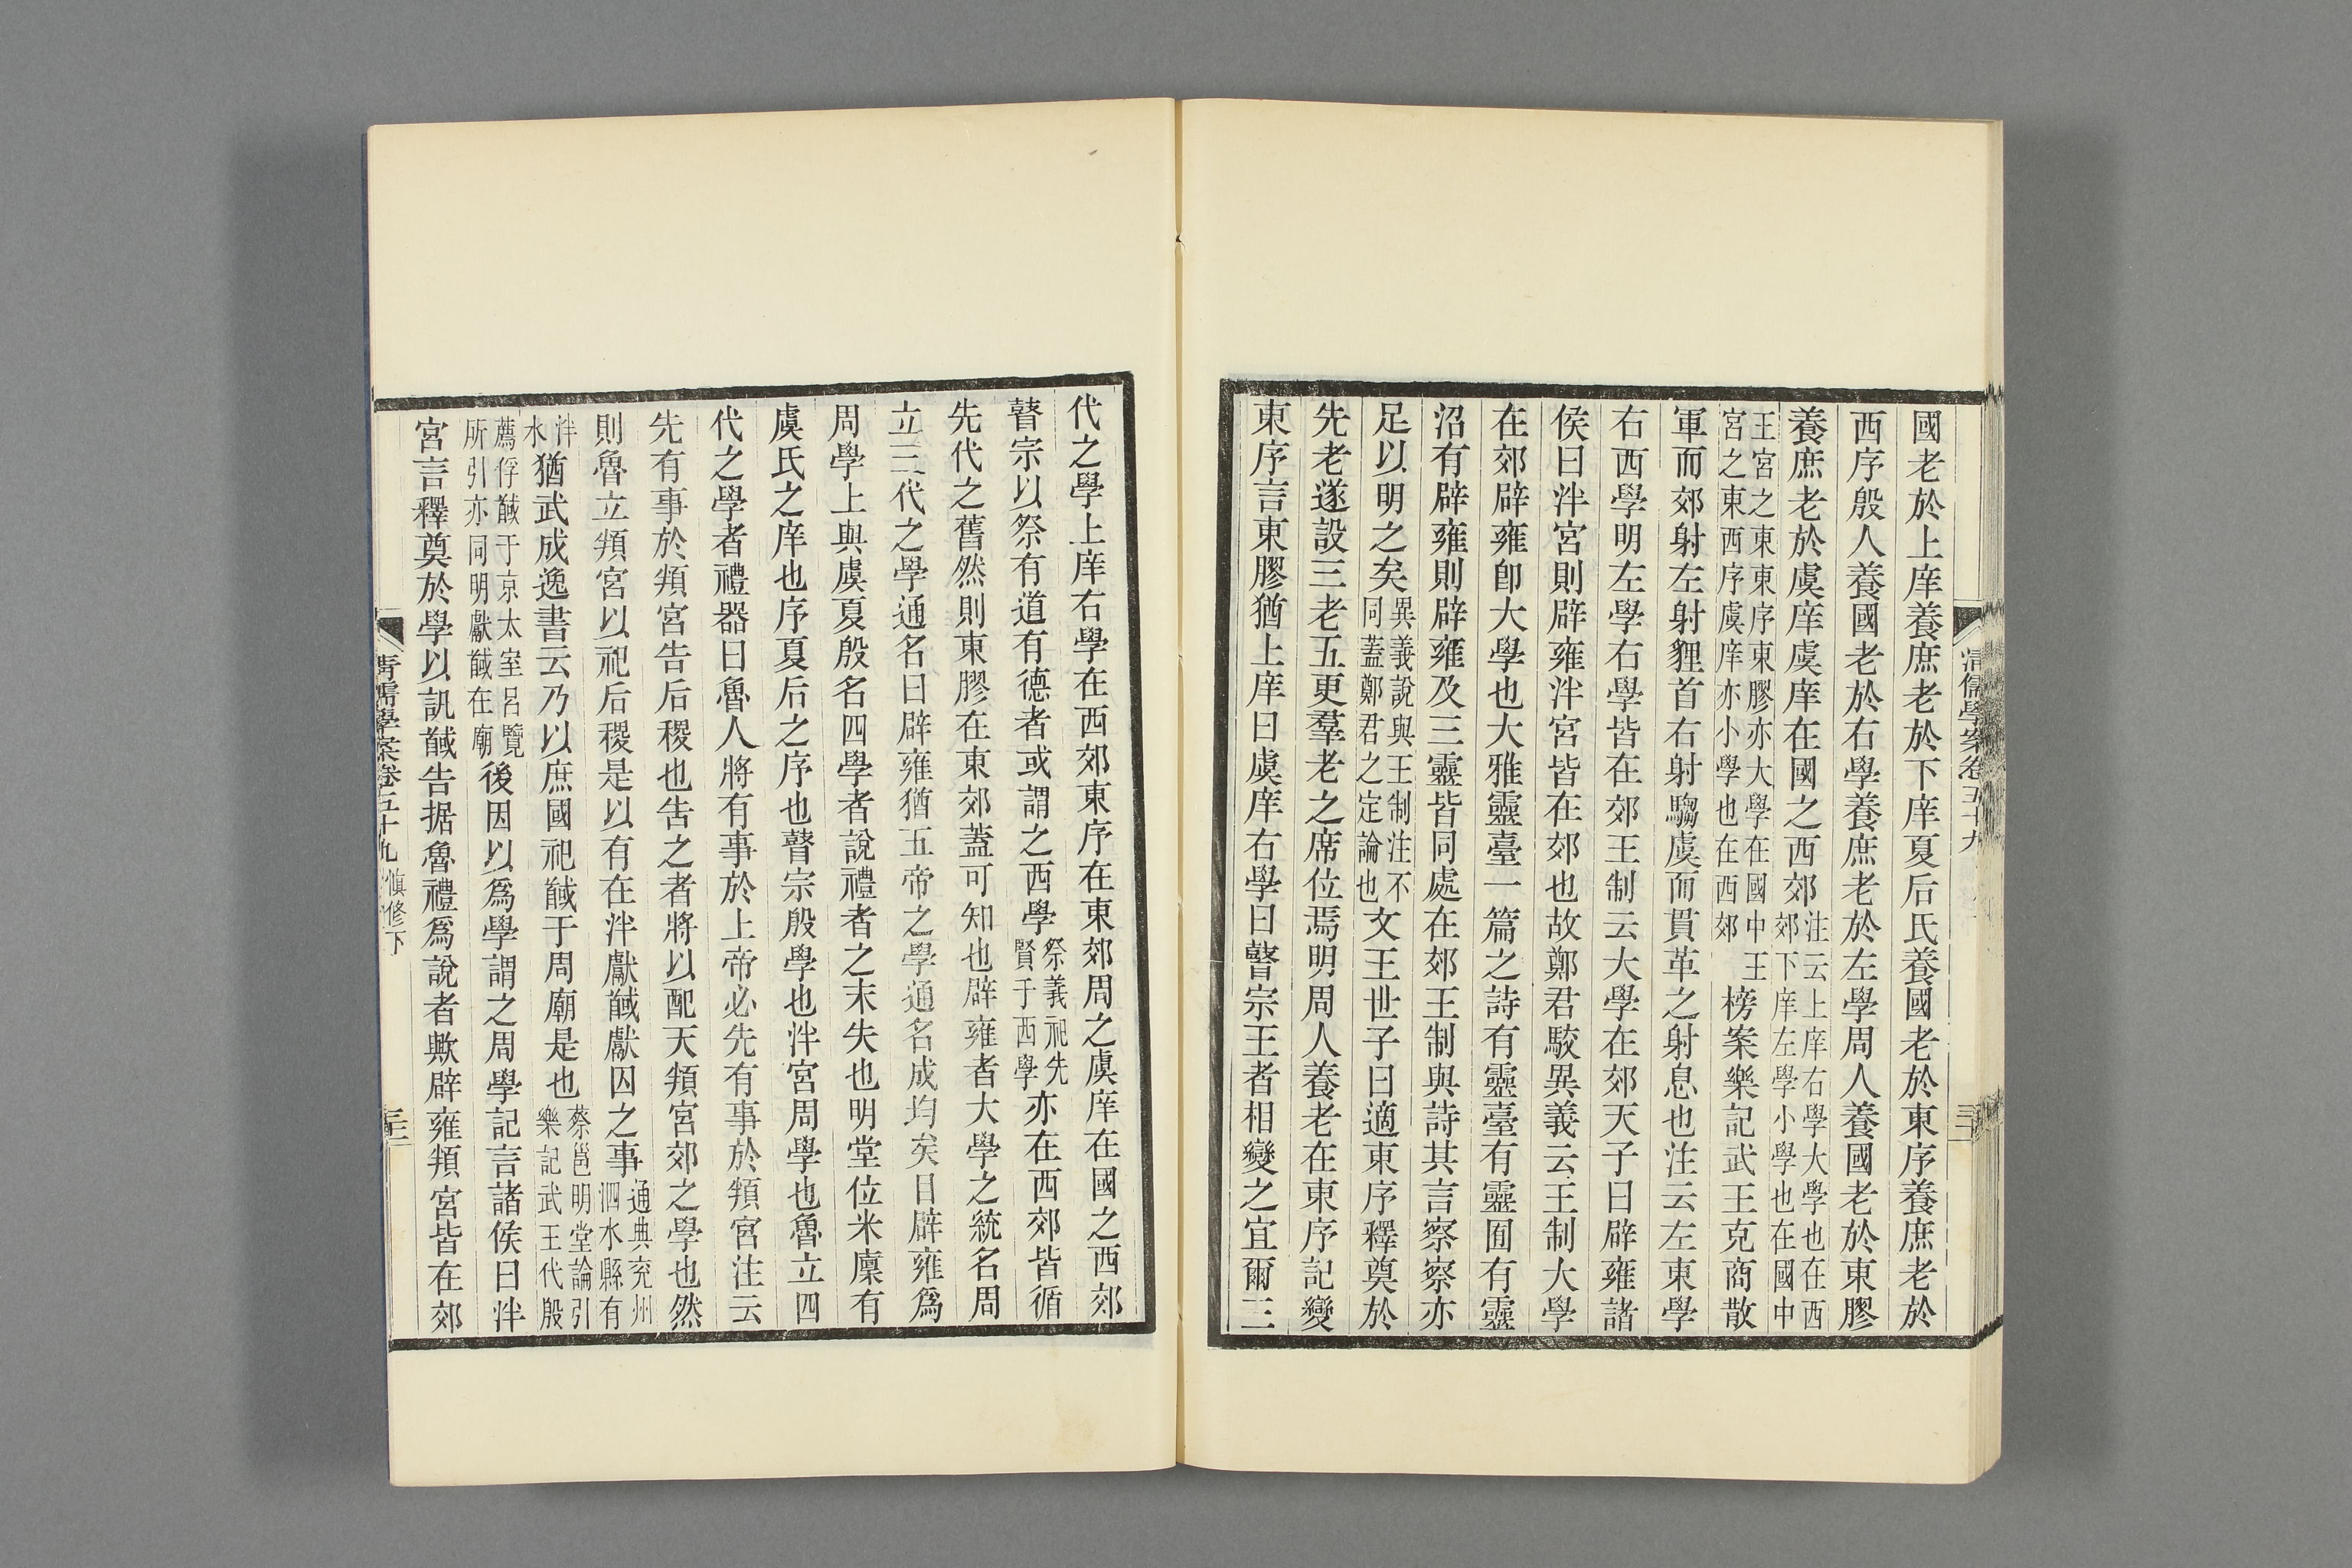 國老於上庠養庶老於下庠夏后氏養國老於東序養庶老於
西序殷人養國老於右學養庶老於左學周人養國老於東膠
養庶老於虞庠虞庠在國之西郊注云上庠右學大學也在西郊下庠左學小學也在國中
王宮之東東序東膠亦大學在國中王宮之東西序虞庠亦小學也在西郊榜案樂記武王克商散
軍而郊射左射貍首右射騶虞而貫革之射息也注云左東學
右西學明左學右學皆在郊王制云大學在郊天子曰辟雍諸
侯曰泮宮則辟雍泮宮皆在郊也故鄭君駮異義云王制大學
在郊辟雍卽大學也大雅靈臺一篇之詩有靈臺有靈囿有靈
沼有辟雍則辟雍及三靈皆同處在郊王制與詩其言察察亦
足以明之矣異義說與王制注不同蓋鄭君之定論也文王世子曰適東序釋奠於
先老遂設三老五更羣老之席位焉明周人養老在東序記變
東序言東膠猶上庠曰虞庠右學曰瞽宗王者相變之宜爾三
清儒學案卷五十九
代之學上庠右學在西郊東序在東郊周之虞庠在國之西郊
瞽宗以祭有道有德者或謂之西學祭義祀先賢于西學亦在西郊皆循
先代之舊然則東膠在東郊蓋可知也辟雍者大學之統名周
立三代之學通名曰辟雍猶五帝之學通名成均矣曰辟雍爲
周學上與虞夏殷名四學者說禮者之末失也明堂位米廩有
虞氏之庠也序夏后之序也瞽宗殷學也泮宮周學也魯立四
代之學者禮器曰魯人將有事於上帝必先有事於頖宮注云
先有事於頖宮告后稷也告之者將以配天頖宮郊之學也然
則魯立頖宮以祀后稷是以有在泮獻馘獻囚之事通典兖州泗水縣有
泮水猶武成逸書云乃以庶國祀馘于周廟是也蔡邕明堂論引樂記武王代殷
薦俘馘于京太室呂覽所引亦同明獻馘在廟後因以爲學謂之周學記言諸侯曰泮
宮言釋奠於學以訊馘告据魯禮爲說者歟辟雍頖宮皆在郊
清儒學案卷五十九 愼修下
三二